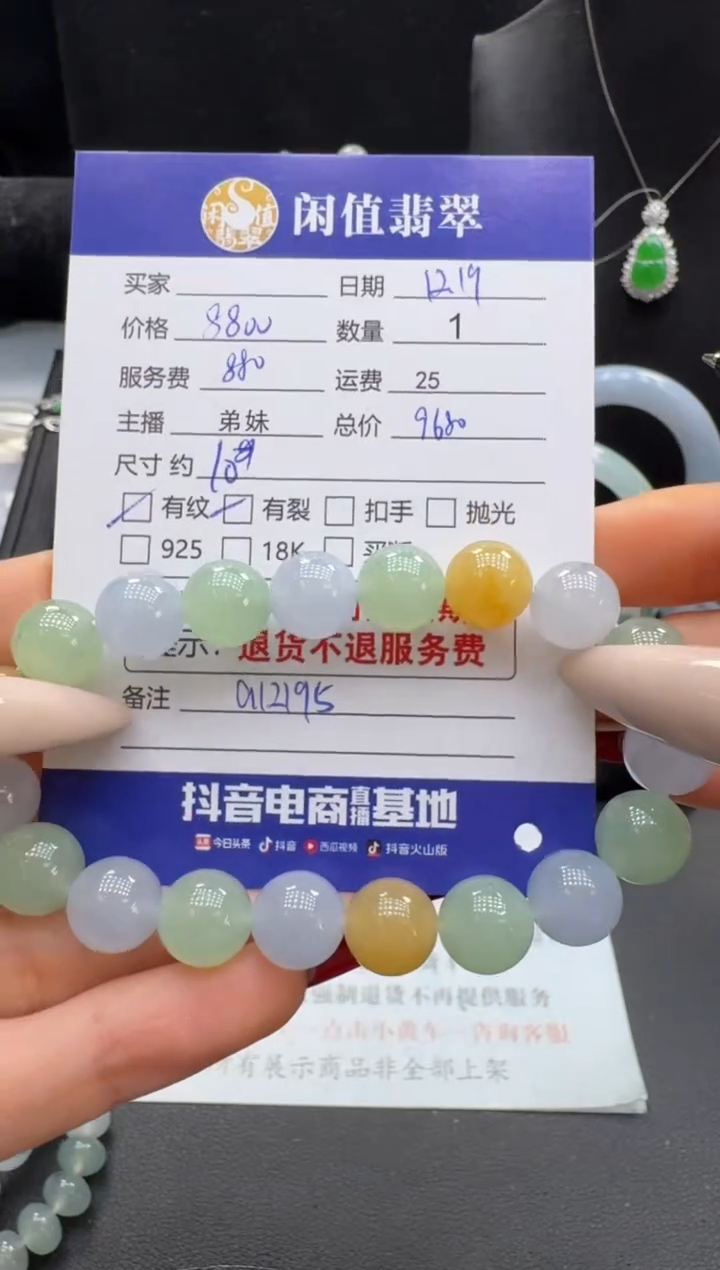 闲值翡翠
闲值翡翠
买家 日期 1219
价格 8800 数量 1
服务费 880 运费 25
主播 弟妹 总价 9680
尺寸 约 10
有纹 有裂 扣手 抛光
925 18K
示: 退货不退服务费
备注 a12195
抖音电商直播基地
头条 今日头条 抖音 西瓜视频 抖音火山版
强制退货不再提供服务
一点击小黄车一咨询客服
所有展示商品非全部上架